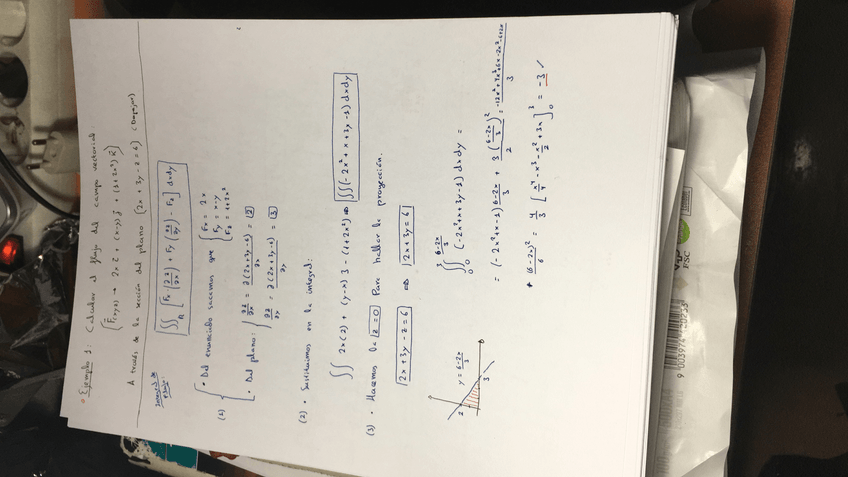 ○ Ejemplo 1: Calcular el flujo del campo vectorial:
A través de la sección del plano [2x + 3y - z = 6] (Dibujar)
∬_R [F_x (∂z/∂x) + F_y (∂z/∂y) - F_z] dxdy
(1) • Del enunciado sacamos que { F_x = 2x
F_y = x-y
F_z = 1+2x²
• Del plano: ∂z/∂x = ∂(2x+3y-6)/∂x = 2
∂z/∂y = ∂(2x+3y-6)/∂y = 3
(2) • Sustituimos en la integral:
∬ 2x(2) + (y-x) 3 - (1+2x²) ⇒ ∬(-2x²+x+3y-1) dxdy
(3) • Hacemos la z=0 Para hallar la proyección.
2x+3y-z=6 ⇒ 2x+3y=6
2
y = (6-2x)/3
3
∫₀³ ∫₀^((6-2x)/3) (-2x²+x+3y-1) dxdy =
= (-2x²+x-1) (6-2x)/3 + 3((6-2x)/3)²/2
+ (6-2x)²/6 = 4/3 [x⁴/4 - x³ - x²/2 + 3x]₀³ = -3 ✓
9 003974
FSC